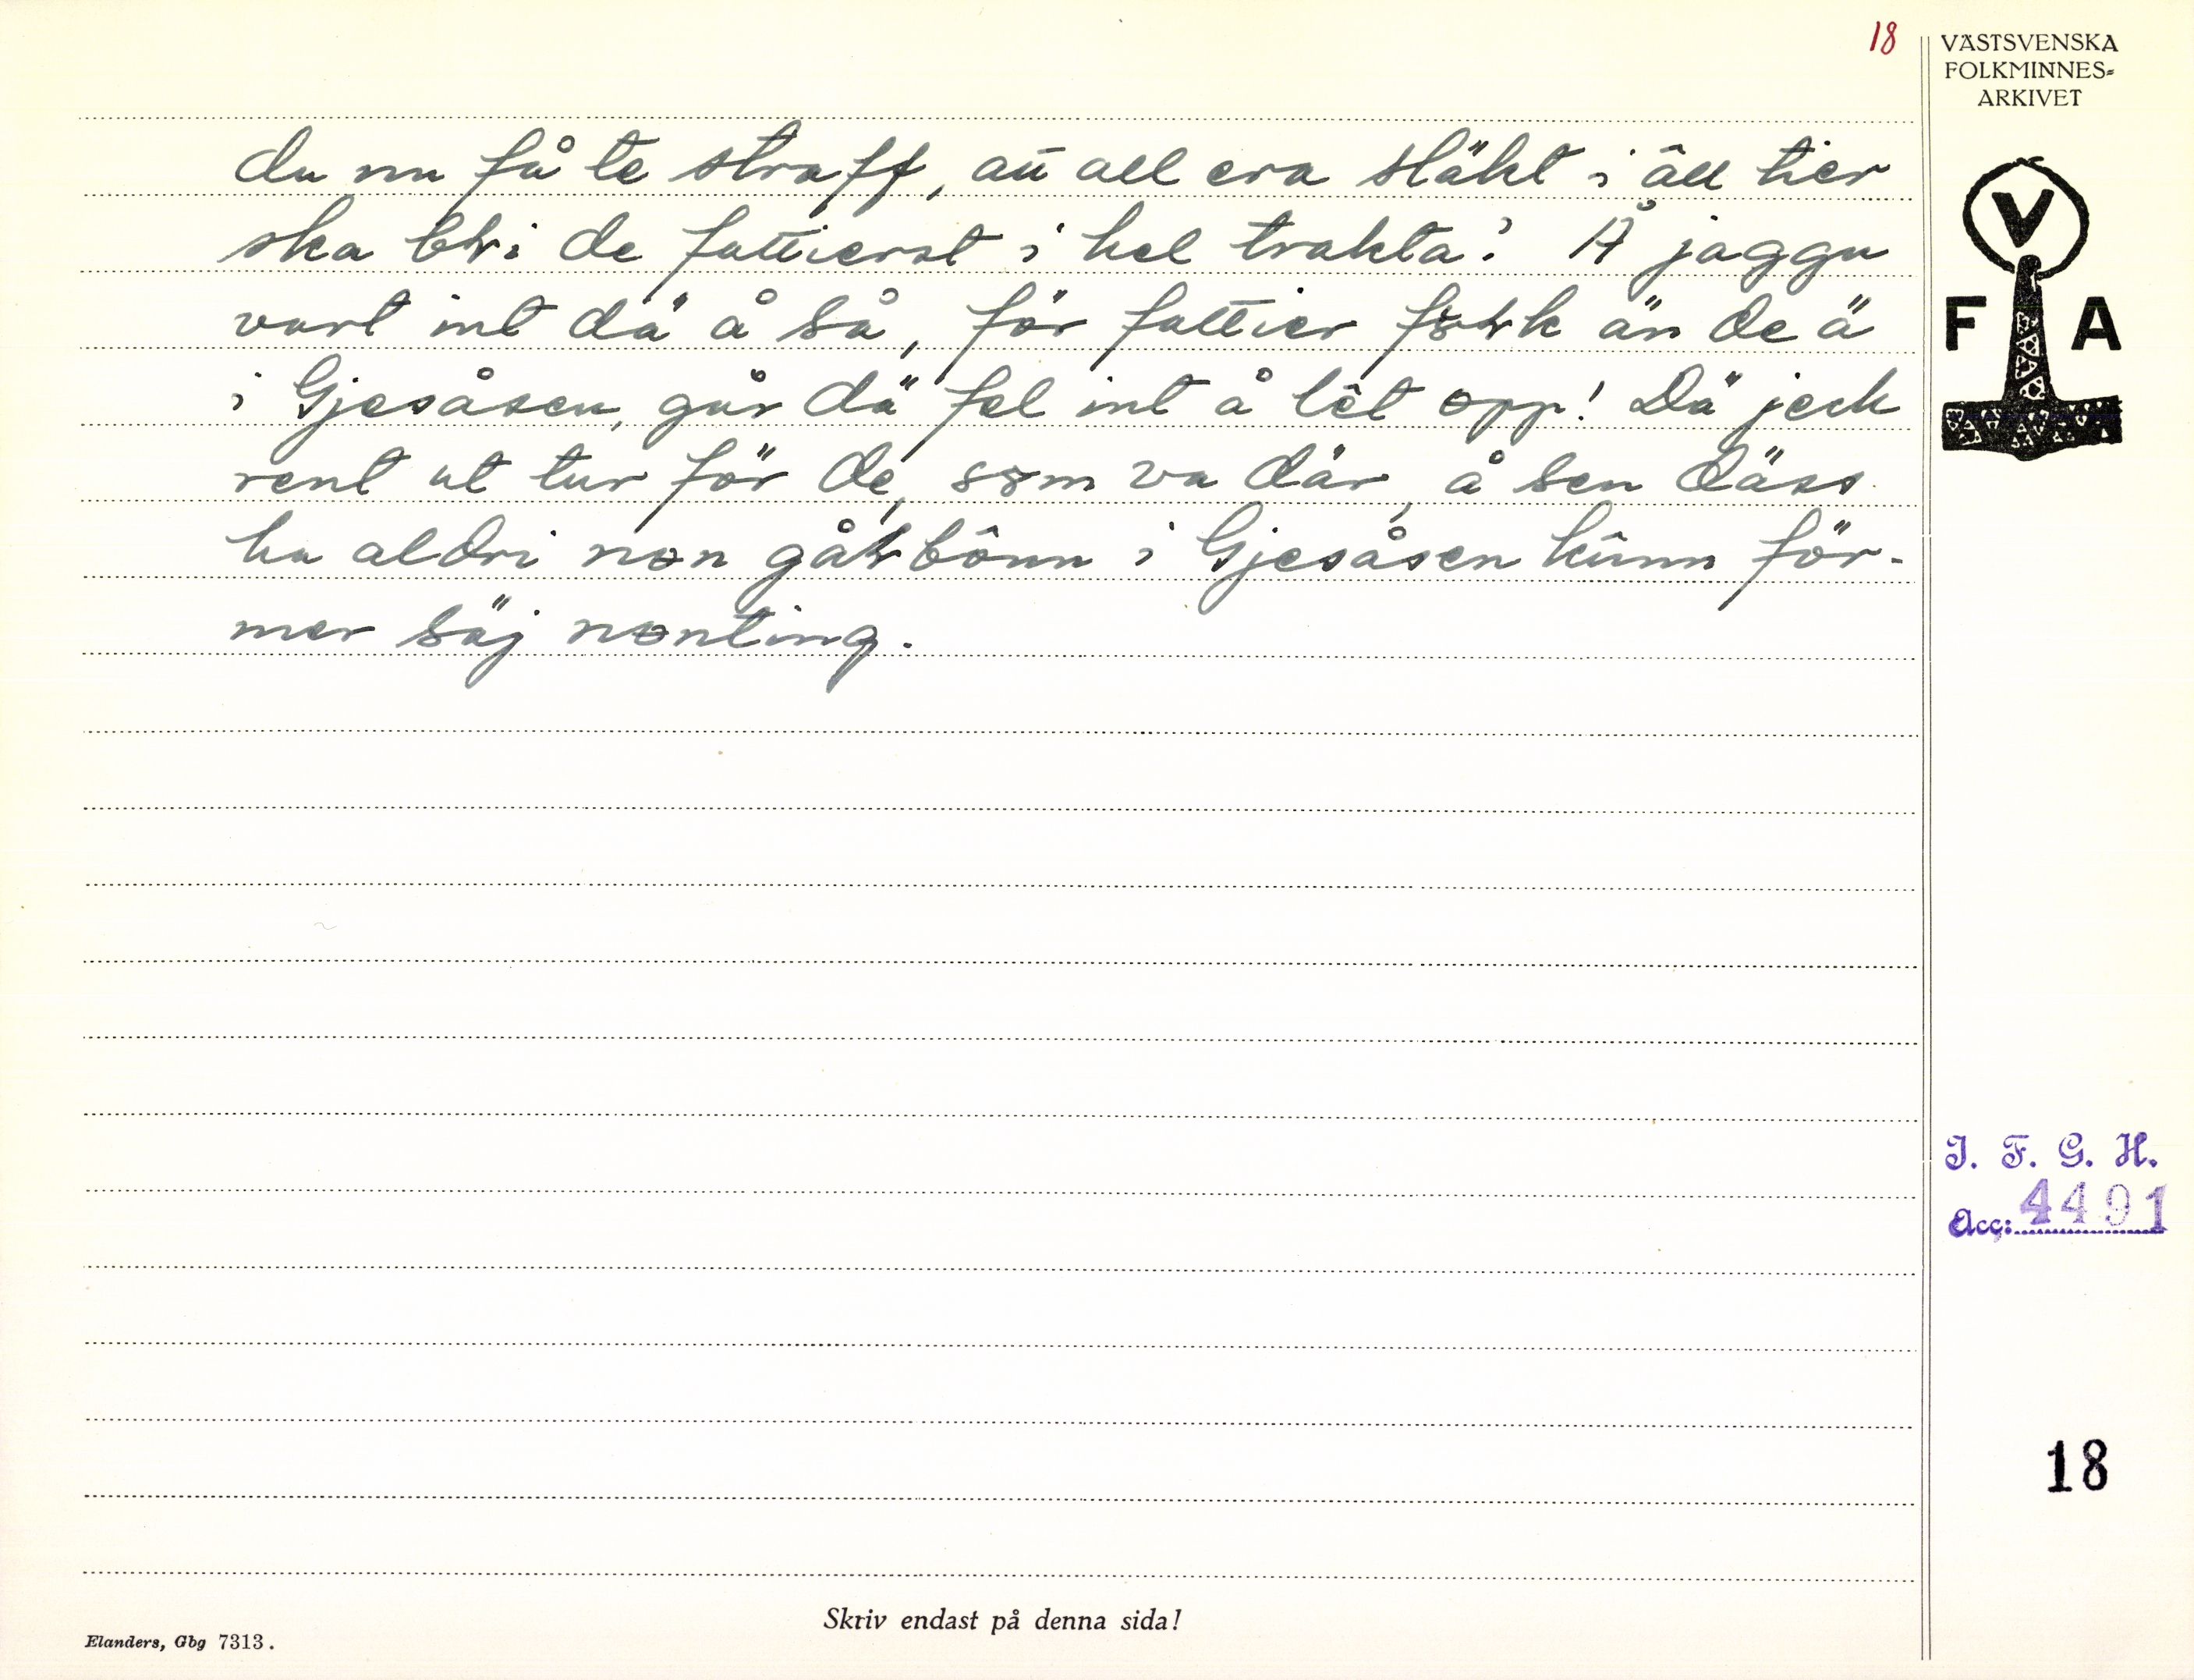 18
VÄSTSVENSKA
FOLKMINNES=
ARKIVET
du nu få te straff, att all era släkt i âll tier
ska bli de fattierst i hel trakta! Å jaggu
vart int dä å så, för fattier folk än de ä
i Gjesåsen, går dä fel int å lêt opp! Dä jeck
rent ut tur för de, som va där, å sen däss
ha aldri non gålbônn i Gjesåsen kûnn för-
mer säj nonting.
V
F A
I. F. G. H.
Acc: 4491
18
Skriv endast på denna sida!
Elanders, Gbg 7313.